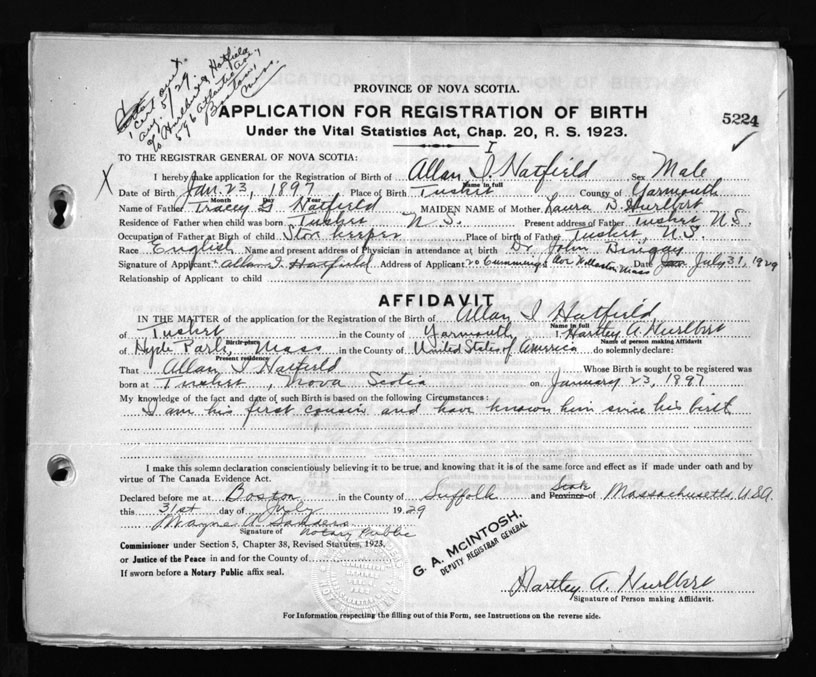 Cert. sent.
Aug. 5/29
to Hurlburt & Hatfield
596 Atlantic Ave.,
Boston,
Mass.
PROVINCE OF NOVA SCOTIA.
APPLICATION FOR REGISTRATION OF BIRTH
5224
Under the Vital Statistics Act, Chap. 20, R. S. 1923.
TO THE REGISTRAR GENERAL OF NOVA SCOTIA:
I
I hereby make application for the Registration of Birth of Allan I. Hatfield Sex Male
Name in full
Date of Birth Jan. 23, 1897 Place of Birth Tusket County of Yarmouth
Month Day Year
Name of Father Tracey G Hatfield MAIDEN NAME of Mother Laura D. Hurlbert
Residence of Father when child was born Tusket N.S. Present address of Father Tusket N.S.
Occupation of Father at Birth of child Store keeper Place of birth of Father Tusket N.S.
Race English Name and present address of Physician in attendance at birth Dr. John
Signature of Applicant Allan I. Hatfield Address of Applicant 20 Cummings Mass Date July 31, 1929
Relationship of Applicant to child
AFFIDAVIT
IN THE MATTER of the application for the Registration of the Birth of Allan I Hatfield
Name in full
of Tusket in the County of Yarmouth I, Hartley A. Hurlbert
Birth-place Name of person making Affidavit
of Hyde Park, Mass in the County of United States of America do solemnly declare:
Present residence
That Allan I Hatfield Whose Birth is sought to be registered was
born at Tusket, Nova Scotia on January 23, 1897
My knowledge of the fact and date of such Birth is based on the following Circumstances:
I am his first cousin and have known him since his birth
I make this solemn declaration conscientiously believing it to be true, and knowing that it is of the same force and effect as if made under oath and by
virtue of The Canada Evidence Act.
Declared before me at Boston in the County of Suffolk and State Province of Massachusetts U.S.A.
this 31st day of July 1929
Wayne A. Sanders
Signature of Notary Public
Commissioner under Section 5, Chapter 38, Revised Statutes, 1923.
or Justice of the Peace in and for the County of
If sworn before a Notary Public affix seal.
G. A. McINTOSH,
DEPUTY REGISTRAR GENERAL
Hartley A. Hurlbert
Signature of Person making Affidavit.
For Information respecting the filling out of this Form, see Instructions on the reverse side.